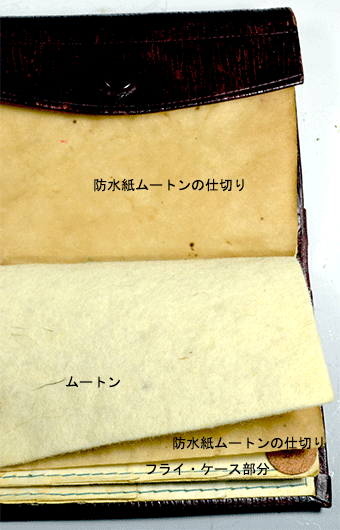 防水紙ムートンの仕切り
ムートン
防水紙ムートンの仕切り
フライ・ケース部分